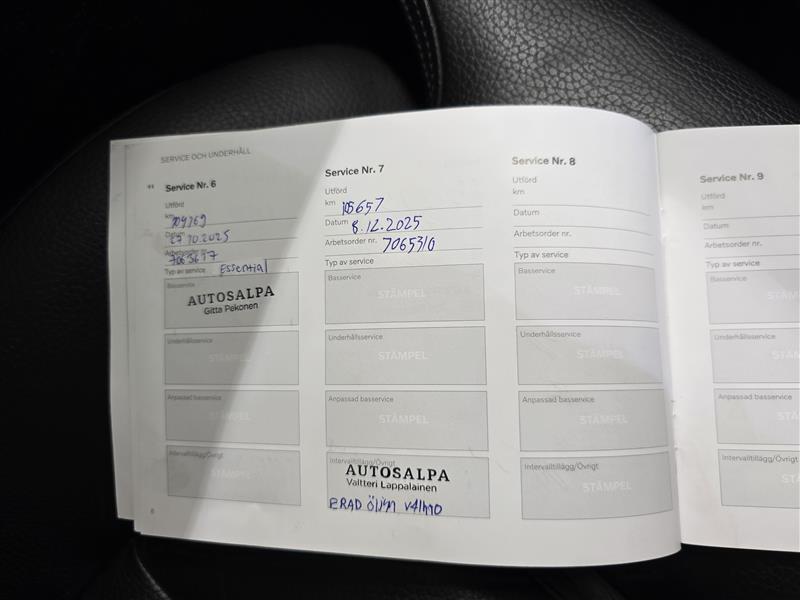 SERVICE OCH UNDERHÅLL
Service Nr. 6
Utförd
km 104169
Datum 27.10.2025
Arbetsorder nr.
Typ av service Essential
Basservice
AUTOSALPA
Gitta Pekonen
Underhållsservice
STÄMPEL
Anpassad basservice
STÄMPEL
Intervalltillägg/Övrigt
STÄMPEL
6
Service Nr. 7
Utförd
km 105657
Datum 8.12.2025
Arbetsorder nr. 7065310
Typ av service
Basservice
STÄMPEL
Underhållsservice
STÄMPEL
Anpassad basservice
STÄMPEL
Intervalltillägg/Övrigt
AUTOSALPA
Valtteri Lappalainen
ERAD öljyn vaihto
Service Nr. 8
Utförd
km
Datum
Arbetsorder nr.
Typ av service
Basservice
STÄMPEL
Underhållsservice
STÄMPEL
Anpassad basservice
STÄMPEL
Intervalltillägg/Övrigt
STÄMPEL
Service Nr. 9
Utförd
km
Datum
Arbetsorder nr.
Typ av service
Basservice
Underhållsservice
Anpassad basservice
Intervalltillägg/Övrigt